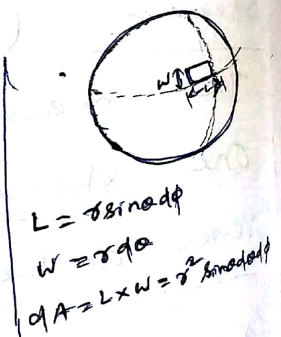 W
L
L = rsinθdϕ
W = rdθ
dA = L×W = r² sinθdθdϕ